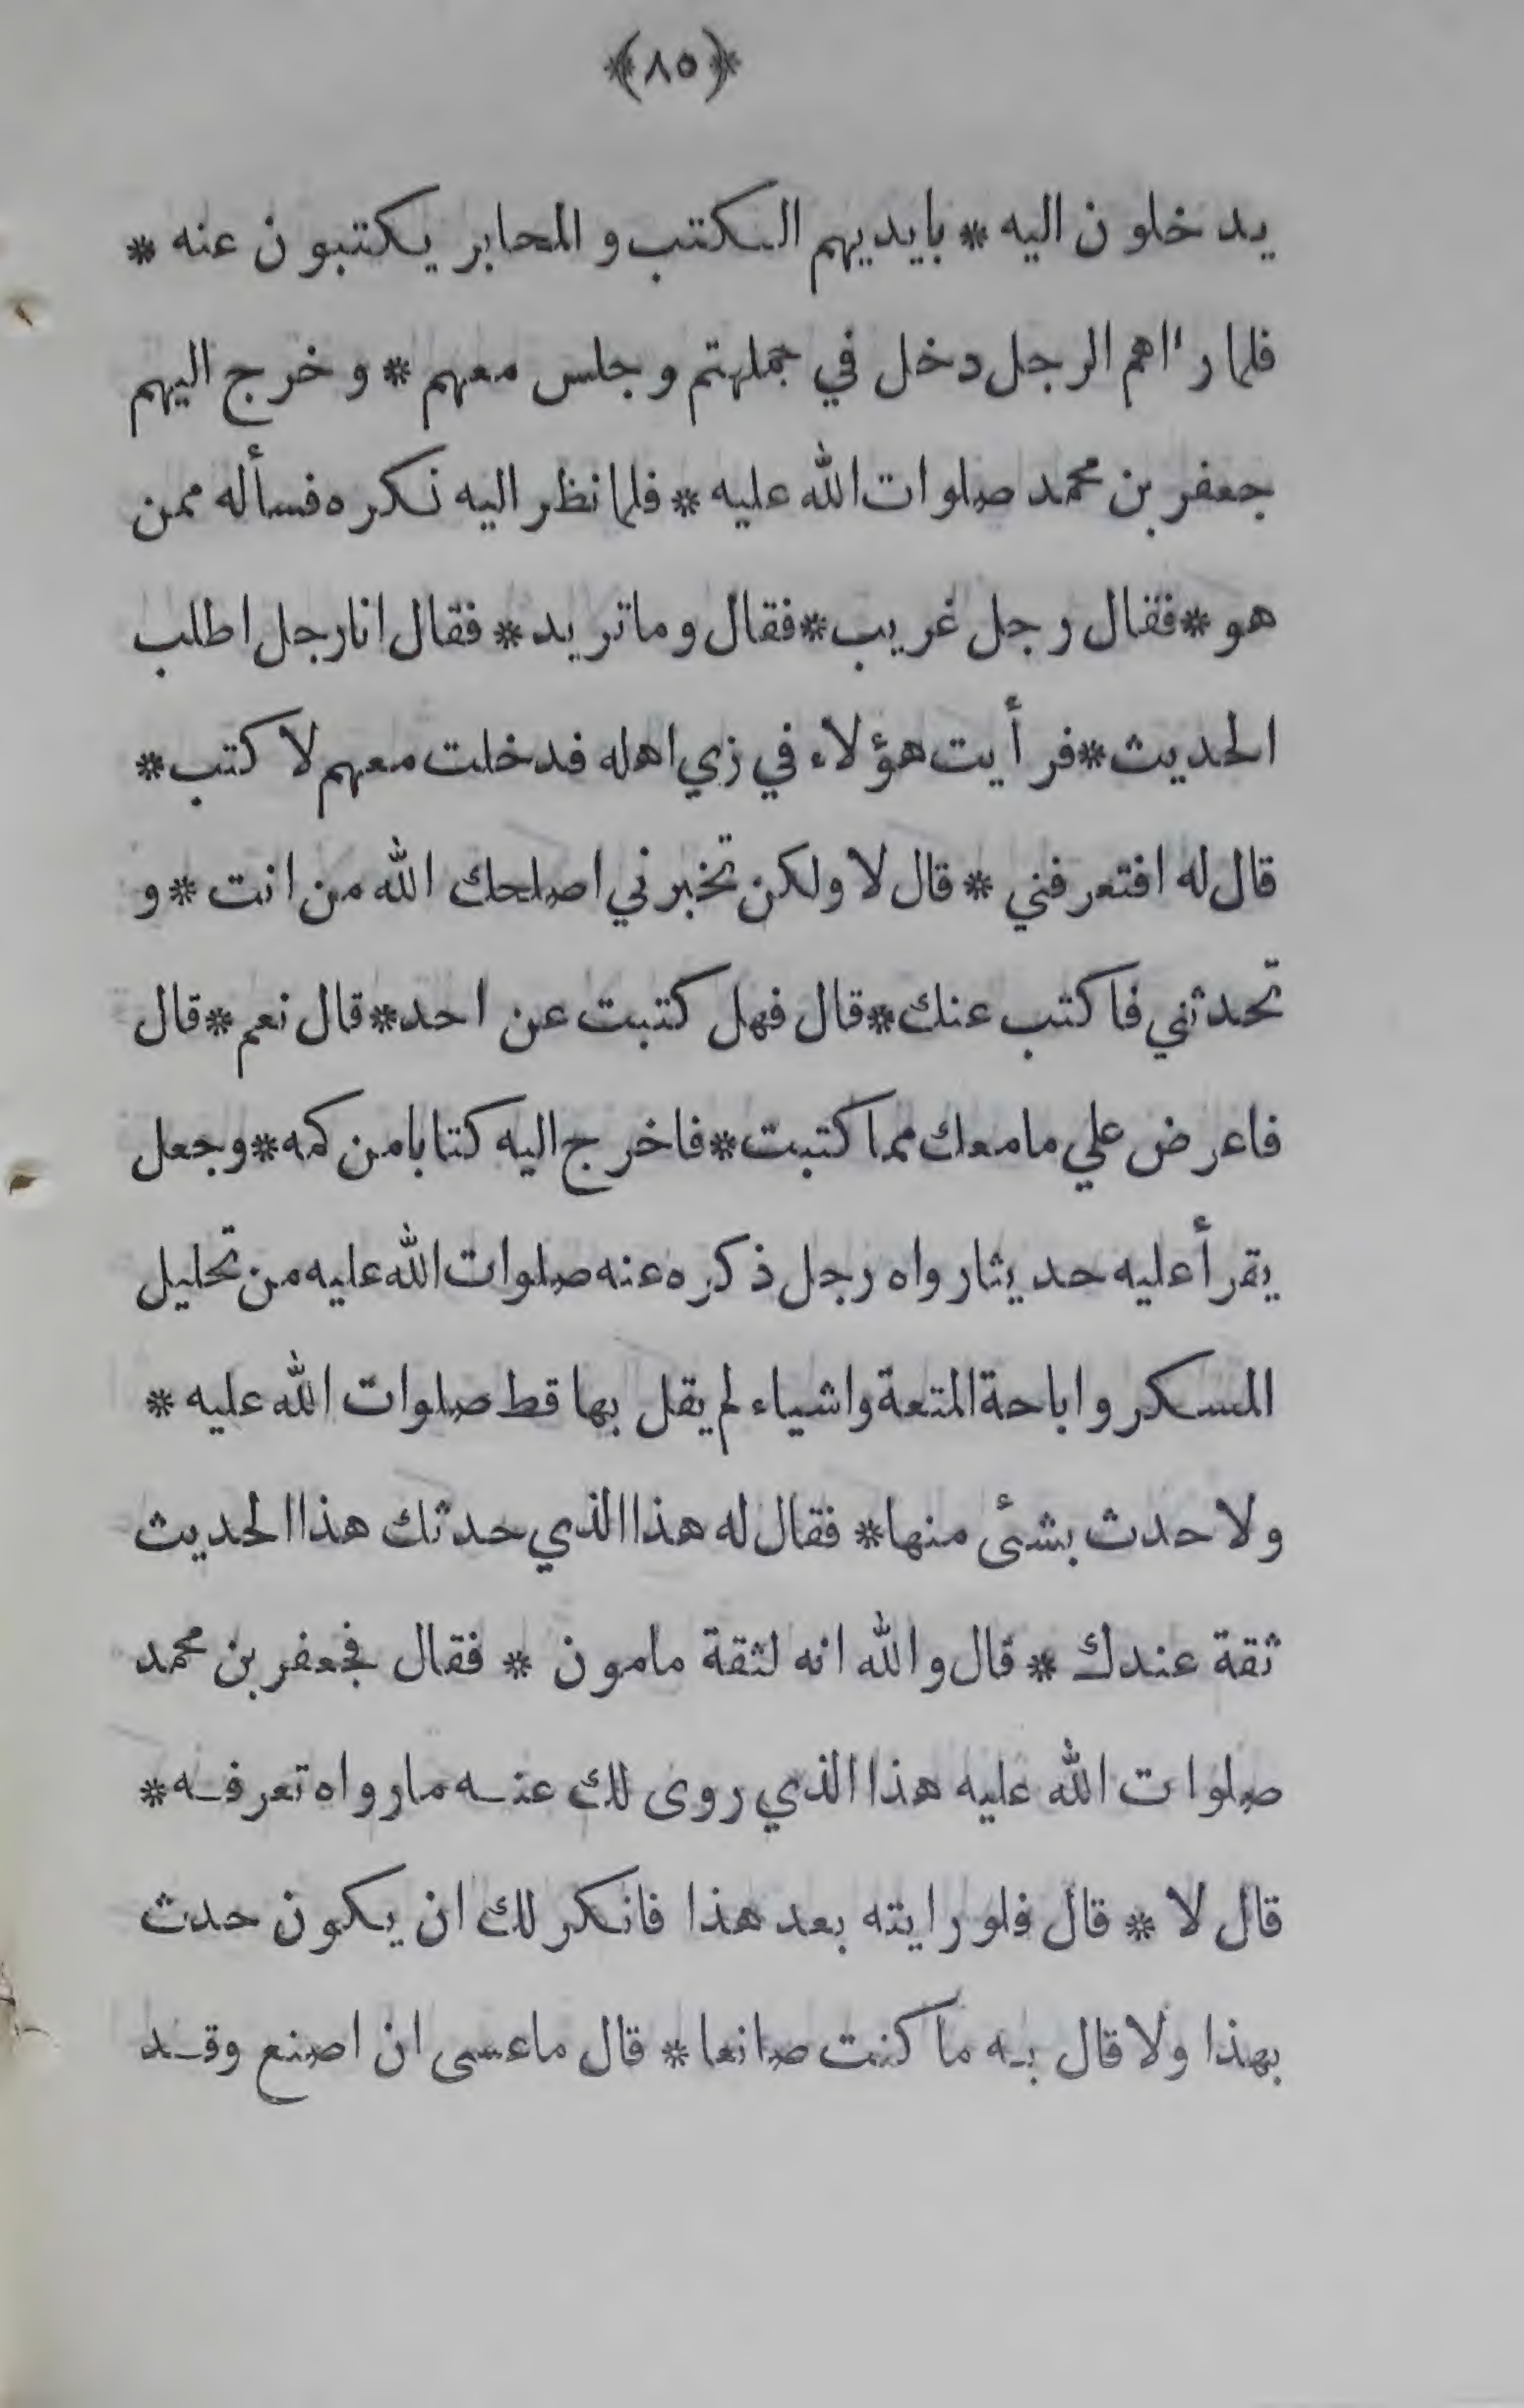 ﴿٨٥﴾
يدخلون اليه * بايديهم الكتب و المحابر يكتبون عنه *
فلما رءاهم الرجل دخل في جملتهم و جلس معهم * و خرج اليهم
جعفر بن محمد صلوات الله عليه * فلما نظر اليه نكره فسأله ممن
هو * فقال رجل غريب * فقال و ما تريد * فقال انا رجل اطلب
الحديث * فرأيت هؤلاء في زي اهله فدخلت معهم لاكتب *
قال له افتعرفني * قال لا ولكن تخبرني اصلحك الله من انت * و
تحدثني فاكتب عنك * قال فهل كتبت عن احد * قال نعم * قال
فاعرض علي ما معك مما كتبت * فاخرج اليه كتابا من كمه * وجعل
يقرأ عليه حديثا رواه رجل ذكره عنه صلوات الله عليه من تحليل
المسكر و اباحة المتعة واشياء لم يقل بها قط صلوات الله عليه *
ولا حدث بشئ منها * فقال له هذا الذي حدثك هذا الحديث
ثقة عندك * قال و الله انه لثقة مامون * فقال فجعفر بن محمد
صلوات الله عليه هذا الذي روى لك عنه ما رواه تعرفه *
قال لا * قال فلو رايته بعد هذا فانكر لك ان يكون حدث
بهذا ولا قال به ما كنت صانعا * قال ما عسى ان اصنع وقد